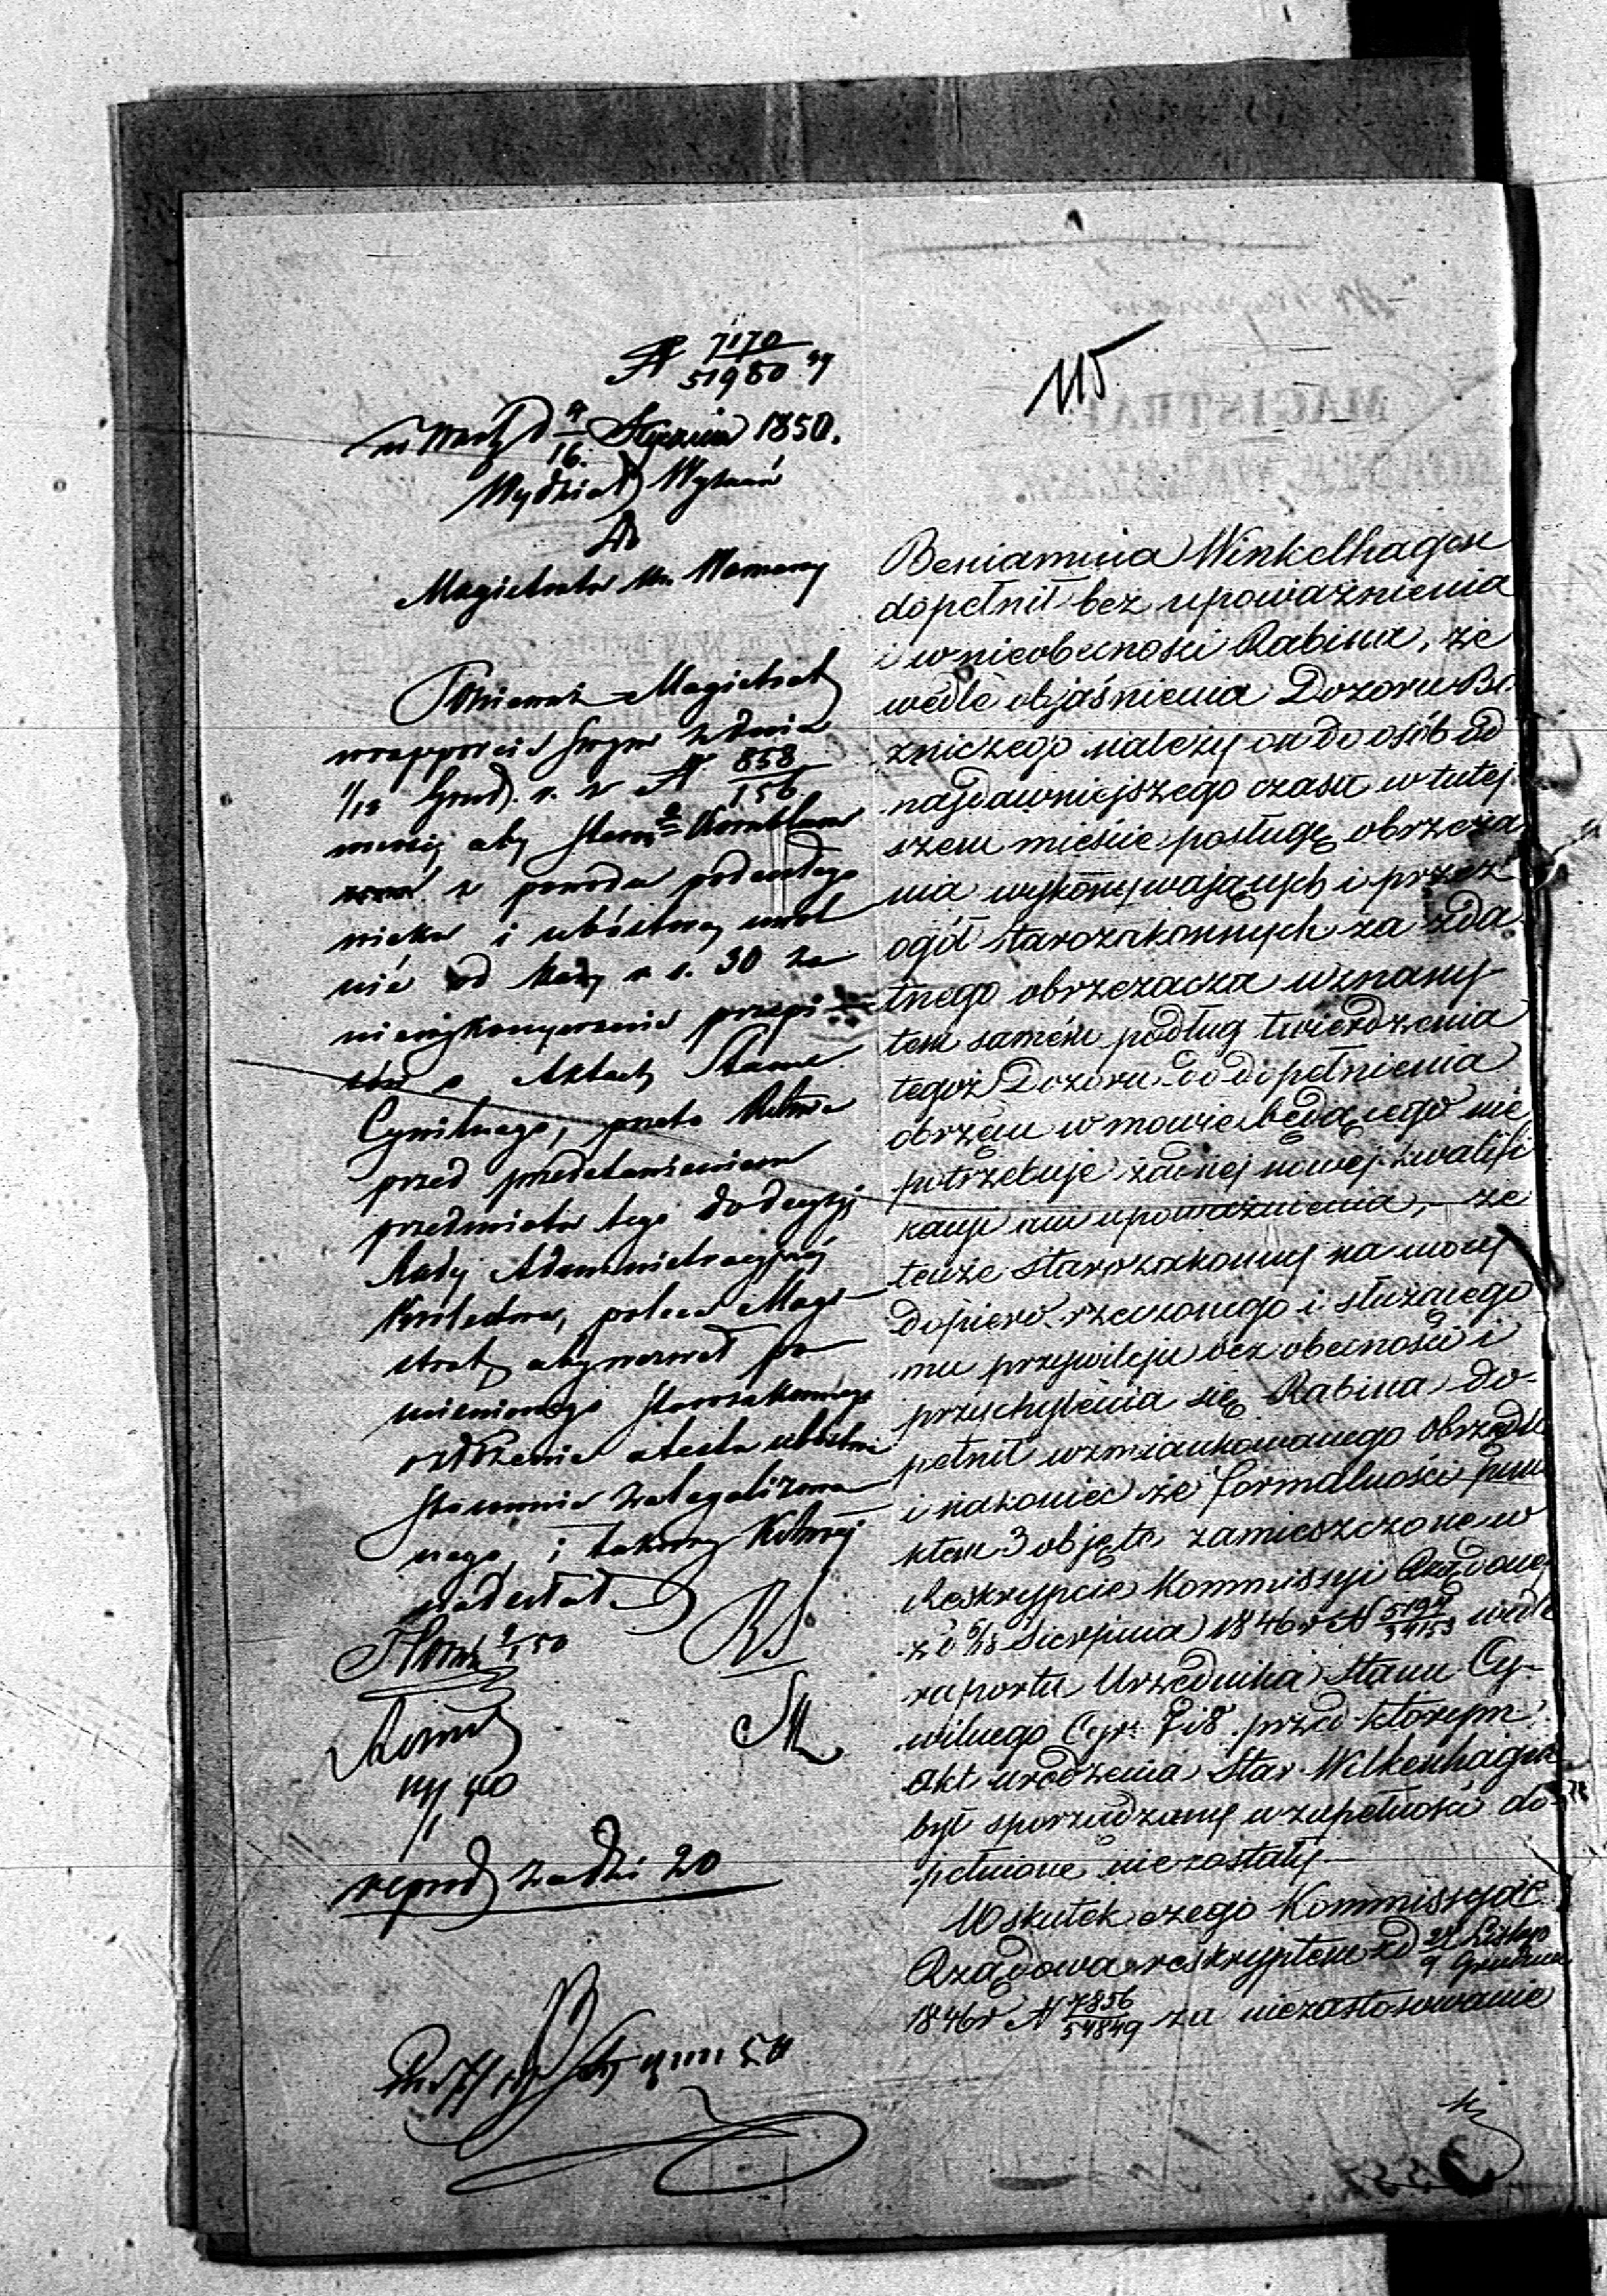 115
N 7170/51980 49
w Warsz d 4/16 Stycznia 1850.
Wydział Wyznań
Do
Magistratu M. Warszawy
Ponieważ Magistrat
w rapporcie swym z dnia
1/13 Grud. r. z N. 858/156
wnosi, aby Staroz. Kornblum
z powodu podeszłego
wieku i ubóstwa, uwol
nić od kary r. s. 30 za
niewykonywanie przepi
sów o Aktach Stanu
Cywilnego, przeto
przed przedstawieniem
przedmiotu tego do decyzyi
Rady Administracyjnej
Królestwa, poleca Magi-
strat, aby wezwał po
mienionego Starozakonnego
o złożenie atestu ubóstwa
stosownie zalegalizowa
nego, i takowy
nadesłał.
RS
50
reprod za dni 20
Beniamina Winkelhagen
dopełnił bez upoważnienia
i w nieobecności Rabina, że
wedle objaśnienia Dozoru Bó
zniczego należy on do osób od
najdawniejszego czasu w tutej
szem mieście posługę obrzeza
nia wykonywających i przez
ogół starozakonnych za zda
tnego obrzezacza uznany
tem samém podług twierdzenia
tegoż Dozoru do dopełnienia
obrzędu w mowie będącego nie
potrzebuje żadnej nowej kwalifi
kacyi ani upoważnienia, – że
tenże starozakonny na mocy
dopiero rzeczonego i służącego
mu przywileju bez obecności i
przychylenia się Rabina do-
pełnił wzmiankowanego obrzędu
i nakoniec że formalności pun
ktem 3 objęte zamieszczone w
Reskrypcie Kommissyi Rządowej
z d 6/18 Sierpnia 1846 r N 5194/34153 wedle
raportu Urzędnika Stanu Cy-
wilnego Cyr. 7 i 8 przed którym
akt urodzenia Star Wilkenhagen
był sporządzany w zupełności do
pełnione nie zostały –
W skutek czego Kommissya
Rządowa reskryptem z d 27 Listop/9 Grudnia
1846 r N 7856/54849 za niezastosowanie